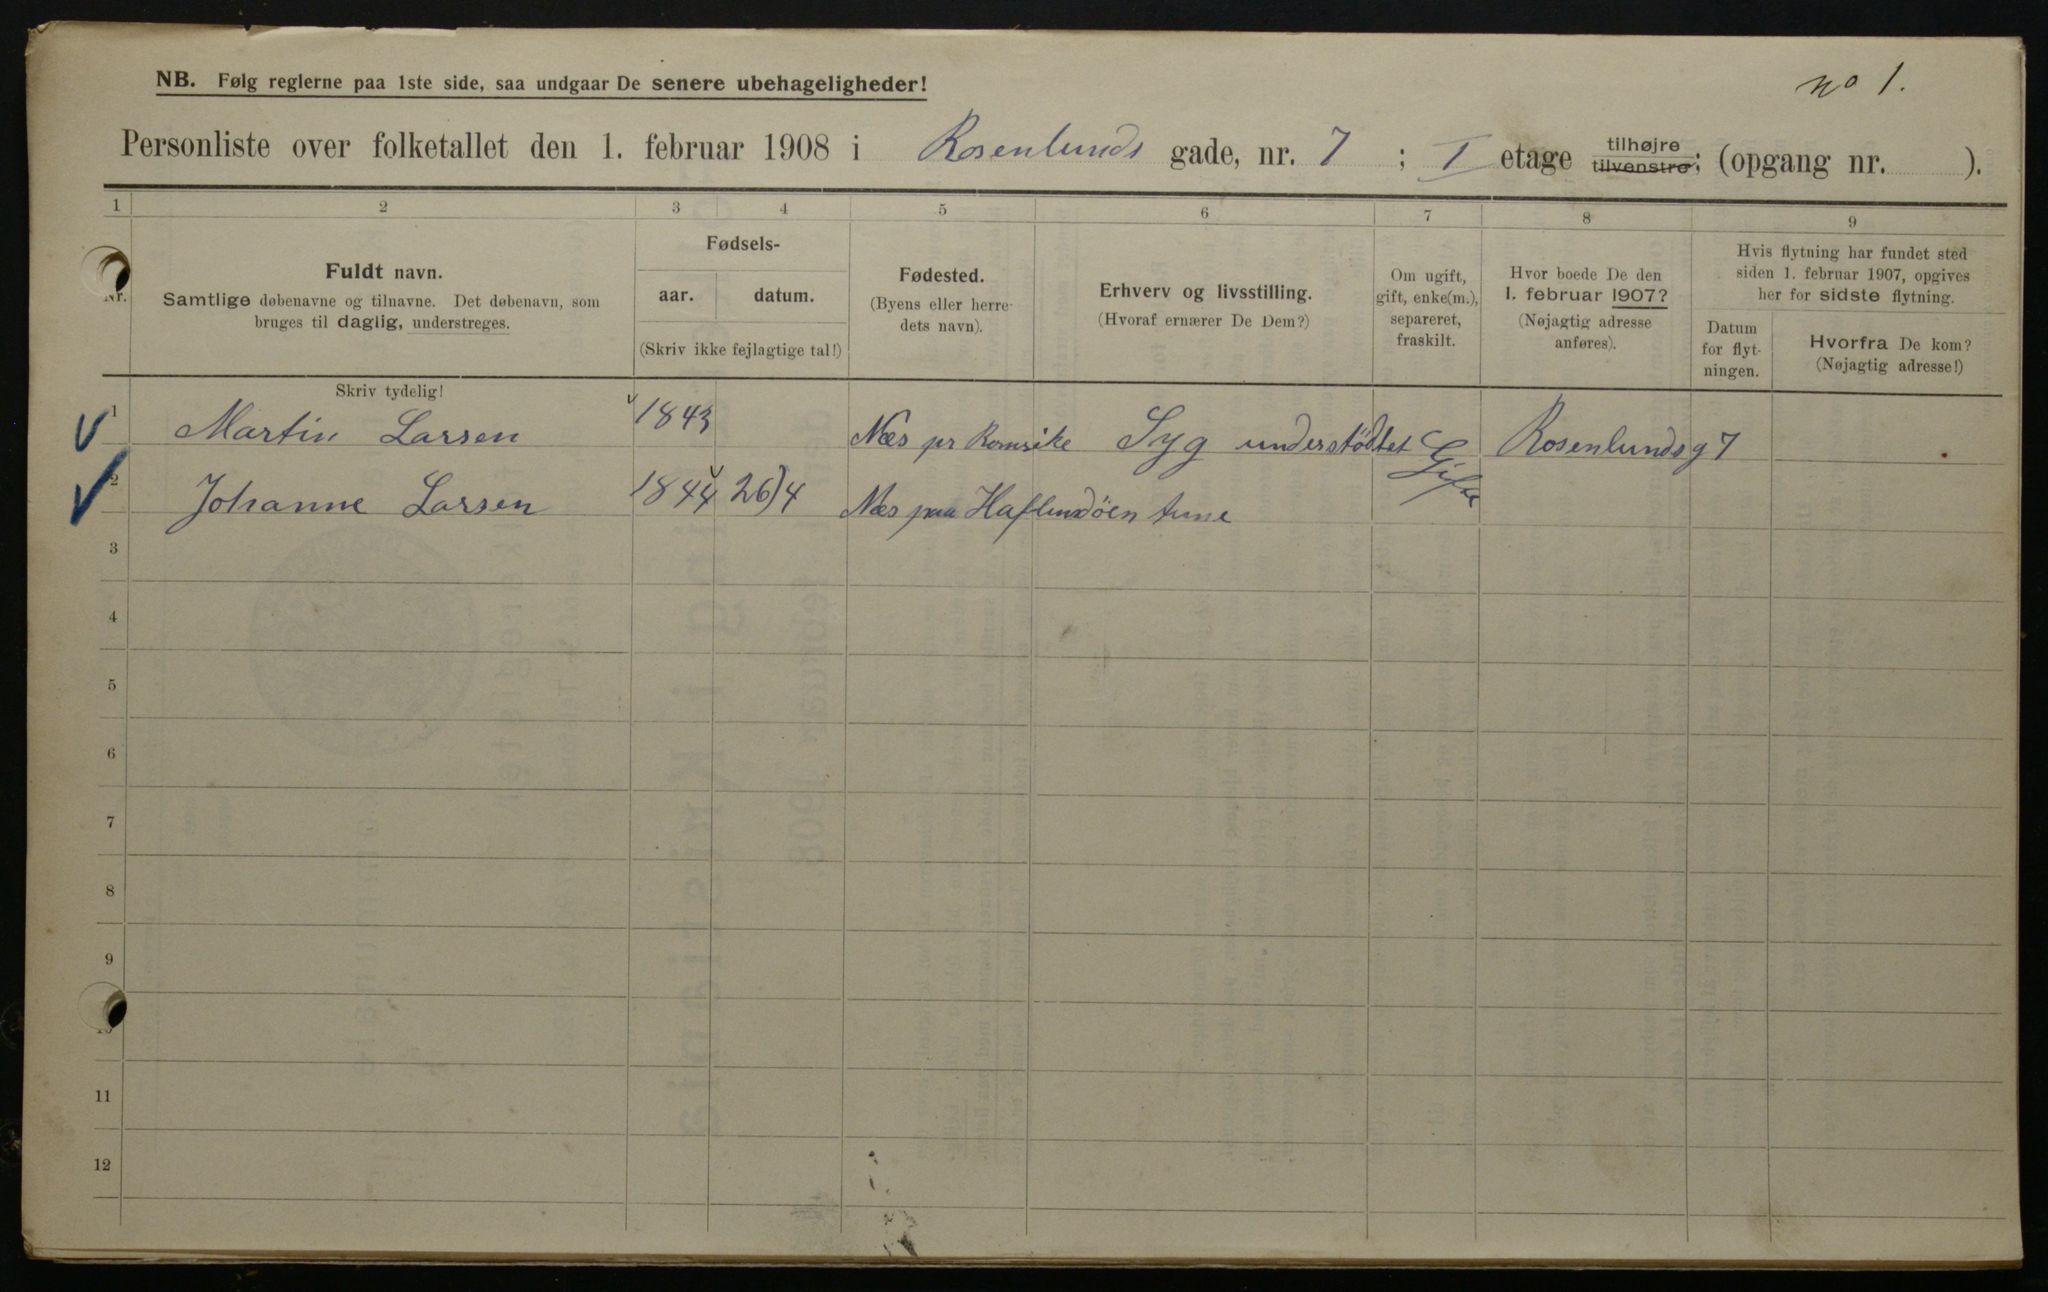 no 1.
NB. Følg reglerne paa 1ste side, saa undgaar De senere ubehageligheder!
Personliste over folketallet den 1. februar 1908 i Rosenlunds gade, nr. 7 ; I etage tilhøjre tilvenstre; (opgang nr. ).
1 2 3 4 5 6 7 8 9
Nr.
Fuldt navn.
Samtlige døbenavne og tilnavne. Det døbenavn, som
bruges til daglig, understreges.
Skriv tydelig!
Fødsels-
aar. datum.
(Skriv ikke fejlagtige tal!)
Fødested.
(Byens eller herre-
dets navn).
Erhverv og livsstilling.
(Hvoraf ernærer De Dem?)
Om ugift,
gift, enke(m.),
separeret,
fraskilt.
Hvor boede De den
1. februar 1907?
(Nøjagtig adresse
anføres).
Hvis flytning har fundet sted
siden 1. februar 1907, opgives
her for sidste flytning.
Datum
for flyt-
ningen.
Hvorfra De kom?
(Nøjagtig adresse!)
1 Martin Larsen 1843 Næs pr Romsike Syg understödtet Gifte Rosenlundsg 7
2 Johanne Larsen 1844 26/4 Næs paa tune
3
4
5
6
7
8
9
10
11
12